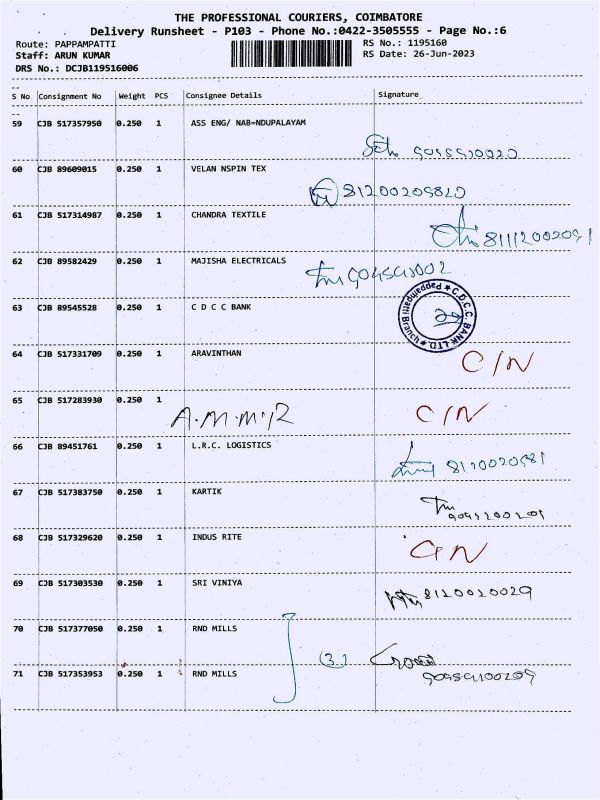 THE PROFESSIONAL COURIERS, COIMBATORE
Delivery Runsheet - P103 - Phone No.:0422-3505555 - Page No.:6
Route: PAPPAMPATTI
RS No.: 1195160
Staff: ARUN KUMAR
RS Date: 26-Jun-2023
DRS No.: DCJB119516006
S No Consignment No Weight PCS Consignee Details Signature
59 CJB 517357950 0.250 1 ASS ENG/ NAB=NDUPALAYAM
60 CJB 89609015 0.250 1 VELAN NSPIN TEX
61 CJB 517314987 0.250 1 CHANDRA TEXTILE
62 CJB 89582429 0.250 1 MAJISHA ELECTRICALS
63 CJB 89545528 0.250 1 C D C C BANK
C.D.C.C. BANK LTD. Pappampatti Branch
64 CJB 517331709 0.250 1 ARAVINTHAN
C/N
65 CJB 517283930 0.250 1
A.M.M.R C/N
66 CJB 89451761 0.250 1 L.R.C. LOGISTICS
67 CJB 517383750 0.250 1 KARTIK
68 CJB 517329620 0.250 1 INDUS RITE
C/N
69 CJB 517303530 0.250 1 SRI VINIYA
8120020029
70 CJB 517377050 0.250 1 RND MILLS
(3)
71 CJB 517353953 0.250 1 RND MILLS